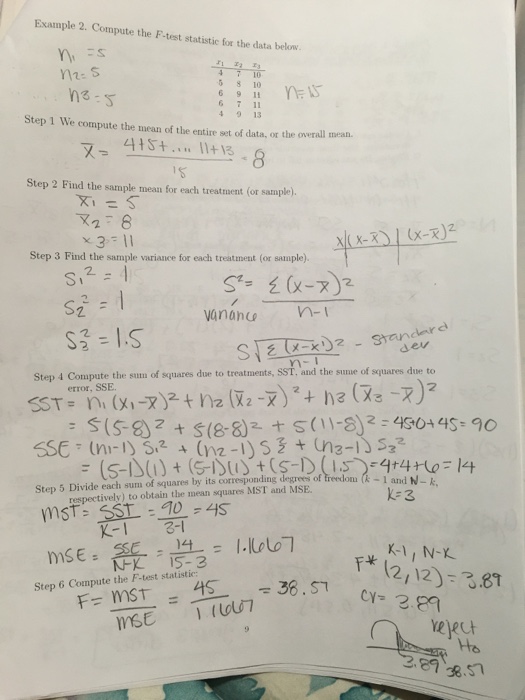 Example 2. Compute the F-test statistic for the data below.
n₁ = 5
n₂ = 5
n3 = 5
x₁ x₂ x₃
4 7 10
5 8 10
6 9 11
6 7 11
4 9 13
n = 15
Step 1 We compute the mean of the entire set of data, or the overall mean.
x̄ = 4+5+.... 11+13 / 15 = 8
Step 2 Find the sample mean for each treatment (or sample).
x̄1 = 5
x̄2 = 8
x3 = 11
x | (x-x̄) | (x-x̄)²
Step 3 Find the sample variance for each treatment (or sample).
S₁² = 1
S₂² = 1
S₃² = 1.5
S² = Σ(x-x̄)² / n-1
variance
S√Σ(x-x̄)² / n-1 - standard dev
Step 4 Compute the sum of squares due to treatments, SST, and the sume of squares due to
error, SSE.
SST = n₁(x₁-x̄)² + n₂(x̄₂-x̄)² + n3(x̄₃-x̄)²
= 5(5-8)² + 5(8-8)² + 5(11-8)² = 45+0+45 = 90
SSE = (n₁-1) S₁² + (n₂-1) S₂² + (n₃-1) S₃²
= (5-1)(1) + (5-1)(1) + (5-1)(1.5) = 4+4+6 = 14
Step 5 Divide each sum of squares by its corresponding degrees of freedom (k - 1 and N - k,
respectively) to obtain the mean squares MST and MSE.
K=3
MST = SST / K-1 = 90 / 3-1 = 45
MSE = SSE / N-K = 14 / 15-3 = 1.1667
Step 6 Compute the F-test statistic:
F = MST / MSE = 45 / 1.1667 = 38.57
K-1, N-K
F* (2,12) = 3.89
CV = 3.89
reject
Ho
3.89 38.57